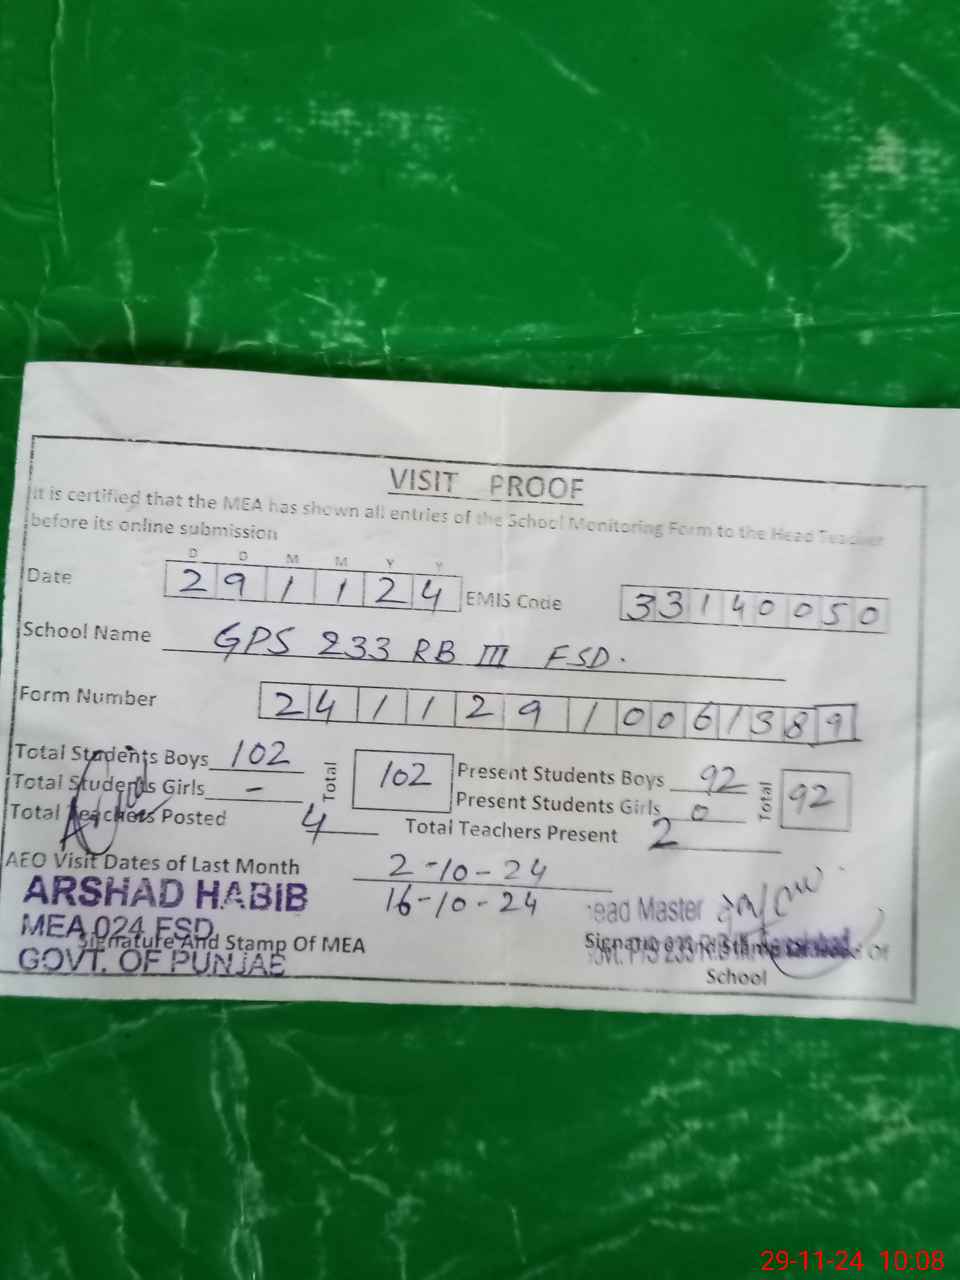 VISIT PROOF
It is certified that the MEA has shown all entries of the School Monitoring Form to the Head Teacher
before its online submission
D D M M Y Y
Date 2 9 1 1 2 4 EMIS Code 3 3 1 4 0 0 5 0
School Name GPS 233 RB III FSD.
Form Number 2 4 1 1 2 9 1 0 0 6 1 3 8 9
Total Students Boys 102 Total 102 Present Students Boys 92 Total 92
Total Students Girls - Present Students Girls 0
Total Teachers Posted 4 Total Teachers Present 2
AEO Visit Dates of Last Month 2-10-24
16-10-24
ARSHAD HABIB
MEA 024 FSD
Signature And Stamp Of MEA
GOVT. OF PUNJAB
Head Master
Signature And Stamp Of
School
29-11-24 10:08